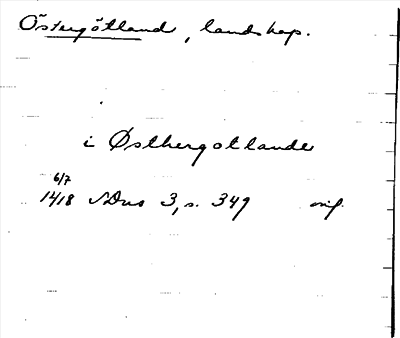 Östergötland, landskap.
i Østhergotlande
6/7
1418 SDns 3, s. 349 orig.